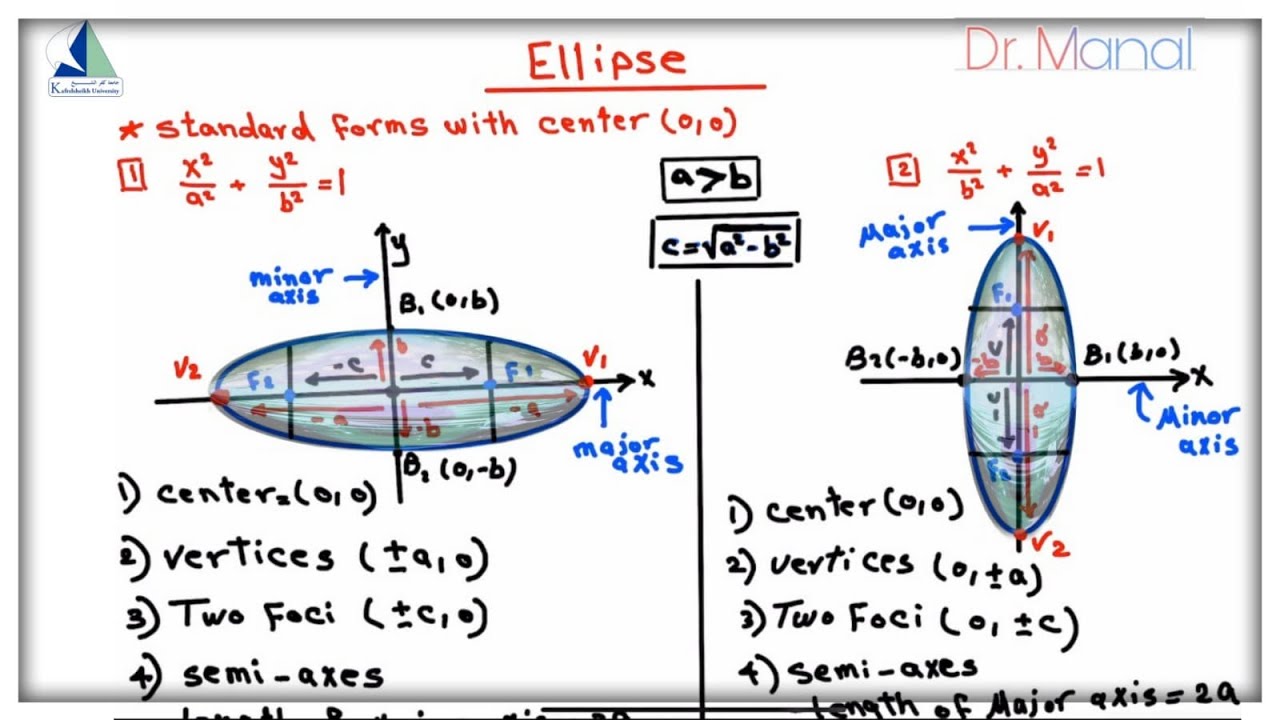 جامعة كفر الشيخ
Kafrelsheikh University
Dr. Manal
Ellipse
* standard forms with center (0,0)
1 x²/a² + y²/b² = 1
a>b
c=√a²-b²
2 x²/b² + y²/a² = 1
y
minor axis →
B₁ (0,b)
V₂
F₂
-c
b
c
F₁
V₁
x
-a
-b
a
major axis
B₂ (0,-b)
Major axis →
V₁
F₁
c
a
B₂(-b,0)
-b
b
B₁(b,0)
x
-c
-a
F₂
Minor axis
V₂
1) center=(0,0)
2) vertices (±a,0)
3) Two Foci (±c,0)
4) semi-axes
1) center(0,0)
2) vertices (0,±a)
3) Two Foci (0,±c)
4) semi-axes
length of Major axis=2a